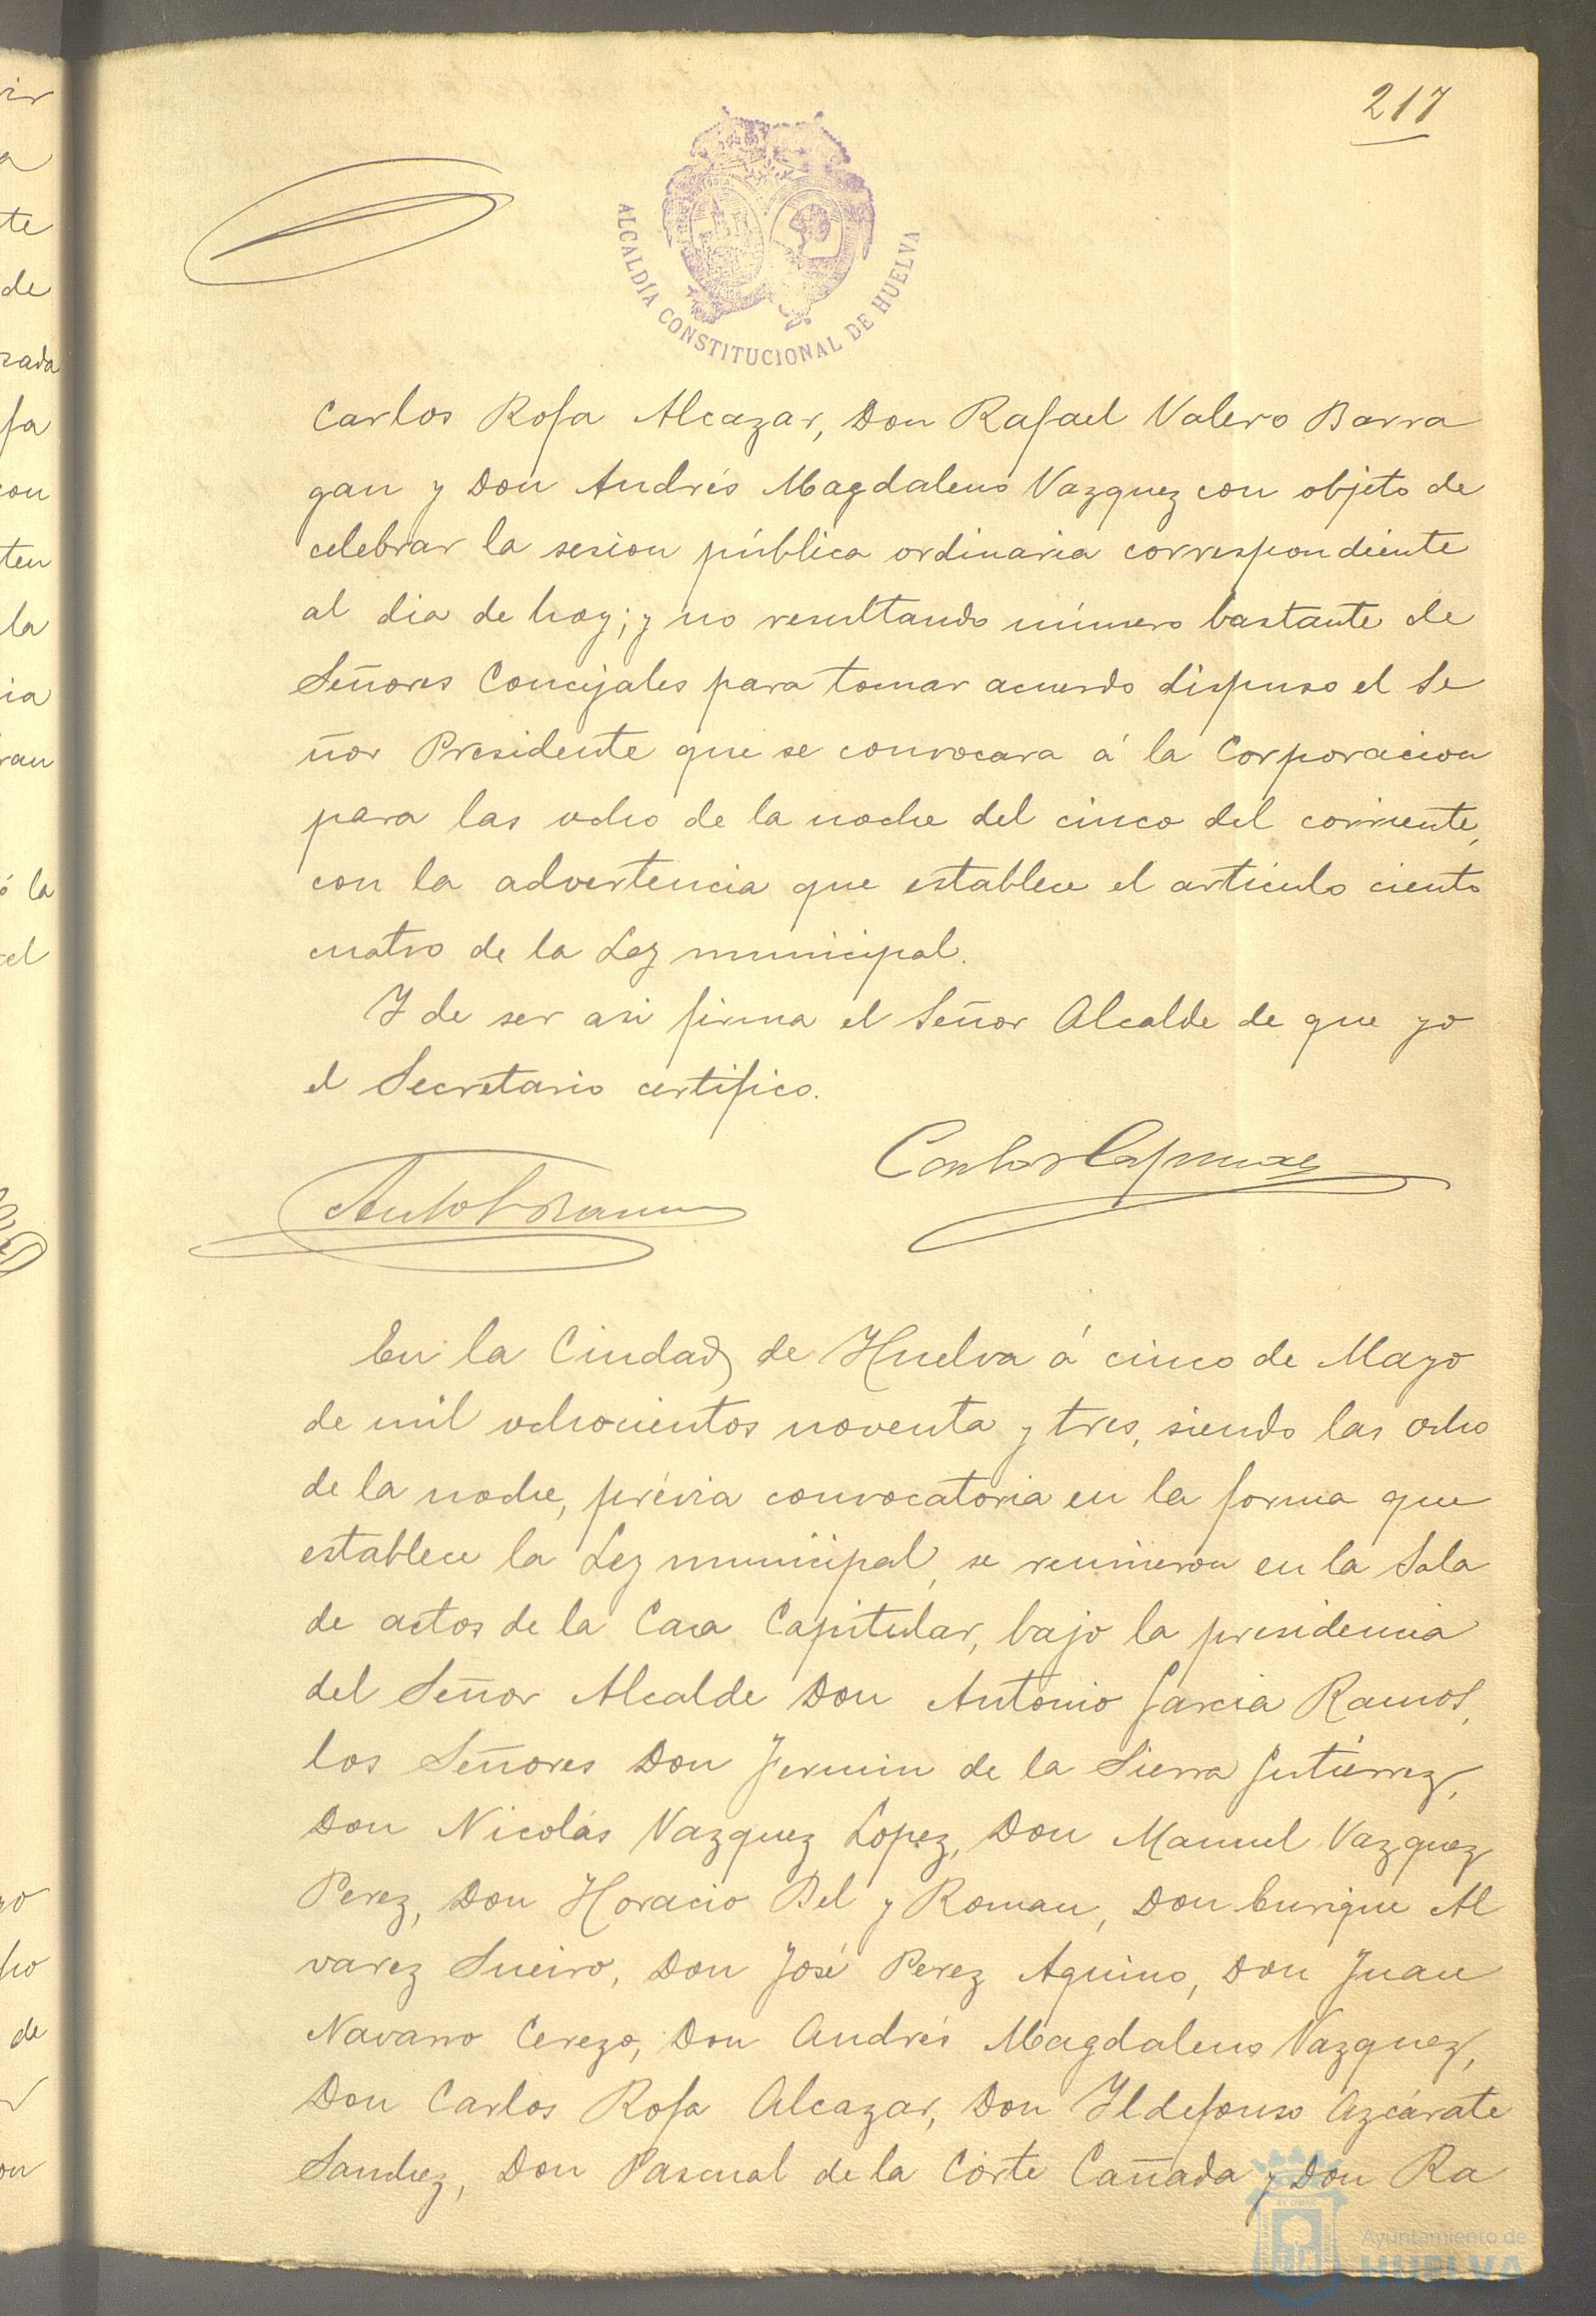 217
ALCALDÍA CONSTITUCIONAL DE HUELVA
Carlos Rofa Alcazar, Don Rafael Valero Barra
gan y Don Andrés Magdaleno Vazquez con objeto de
celebrar la sesion pública ordinaria correspondiente
al dia de hoy; y no resultando número bastante de
Señores Concejales para tomar acuerdo dispuso el Se
ñor Presidente que se convocara á la Corporacion
para las ocho de la noche del cinco del corriente,
con la advertencia que establece el articulo ciento
cuatro de la Ley municipal.
Y de ser asi firma el Señor Alcalde de que yo
el Secretario certifico.
En la Ciudad de Huelva á cinco de Mayo
de mil ochocientos noventa y tres, siendo las ocho
de la noche, prévia convocatoria en la forma que
establece la Ley municipal, se reunieron en la Sala
de actos de la Casa Capitular, bajo la presidencia
del Señor Alcalde Don Antonio Garcia Ramos,
los Señores Don Fermin de la Sierra Gutiérrez,
Don Nicolás Vazquez Lopez, Don Manuel Vazquez
Perez, Don Horacio Bel y Roman, Don Enrique Al
varez Sueiro, Don José Perez Aquino, Don Juan
Navarro Cerezo, Don Andrés Magdaleno Vazquez,
Don Carlos Rofa Alcazar, Don Ildefonso Azcárate
Sanchez, Don Pascual de la Corte Cañada y Don Ra
Ayuntamiento de
HUELVA